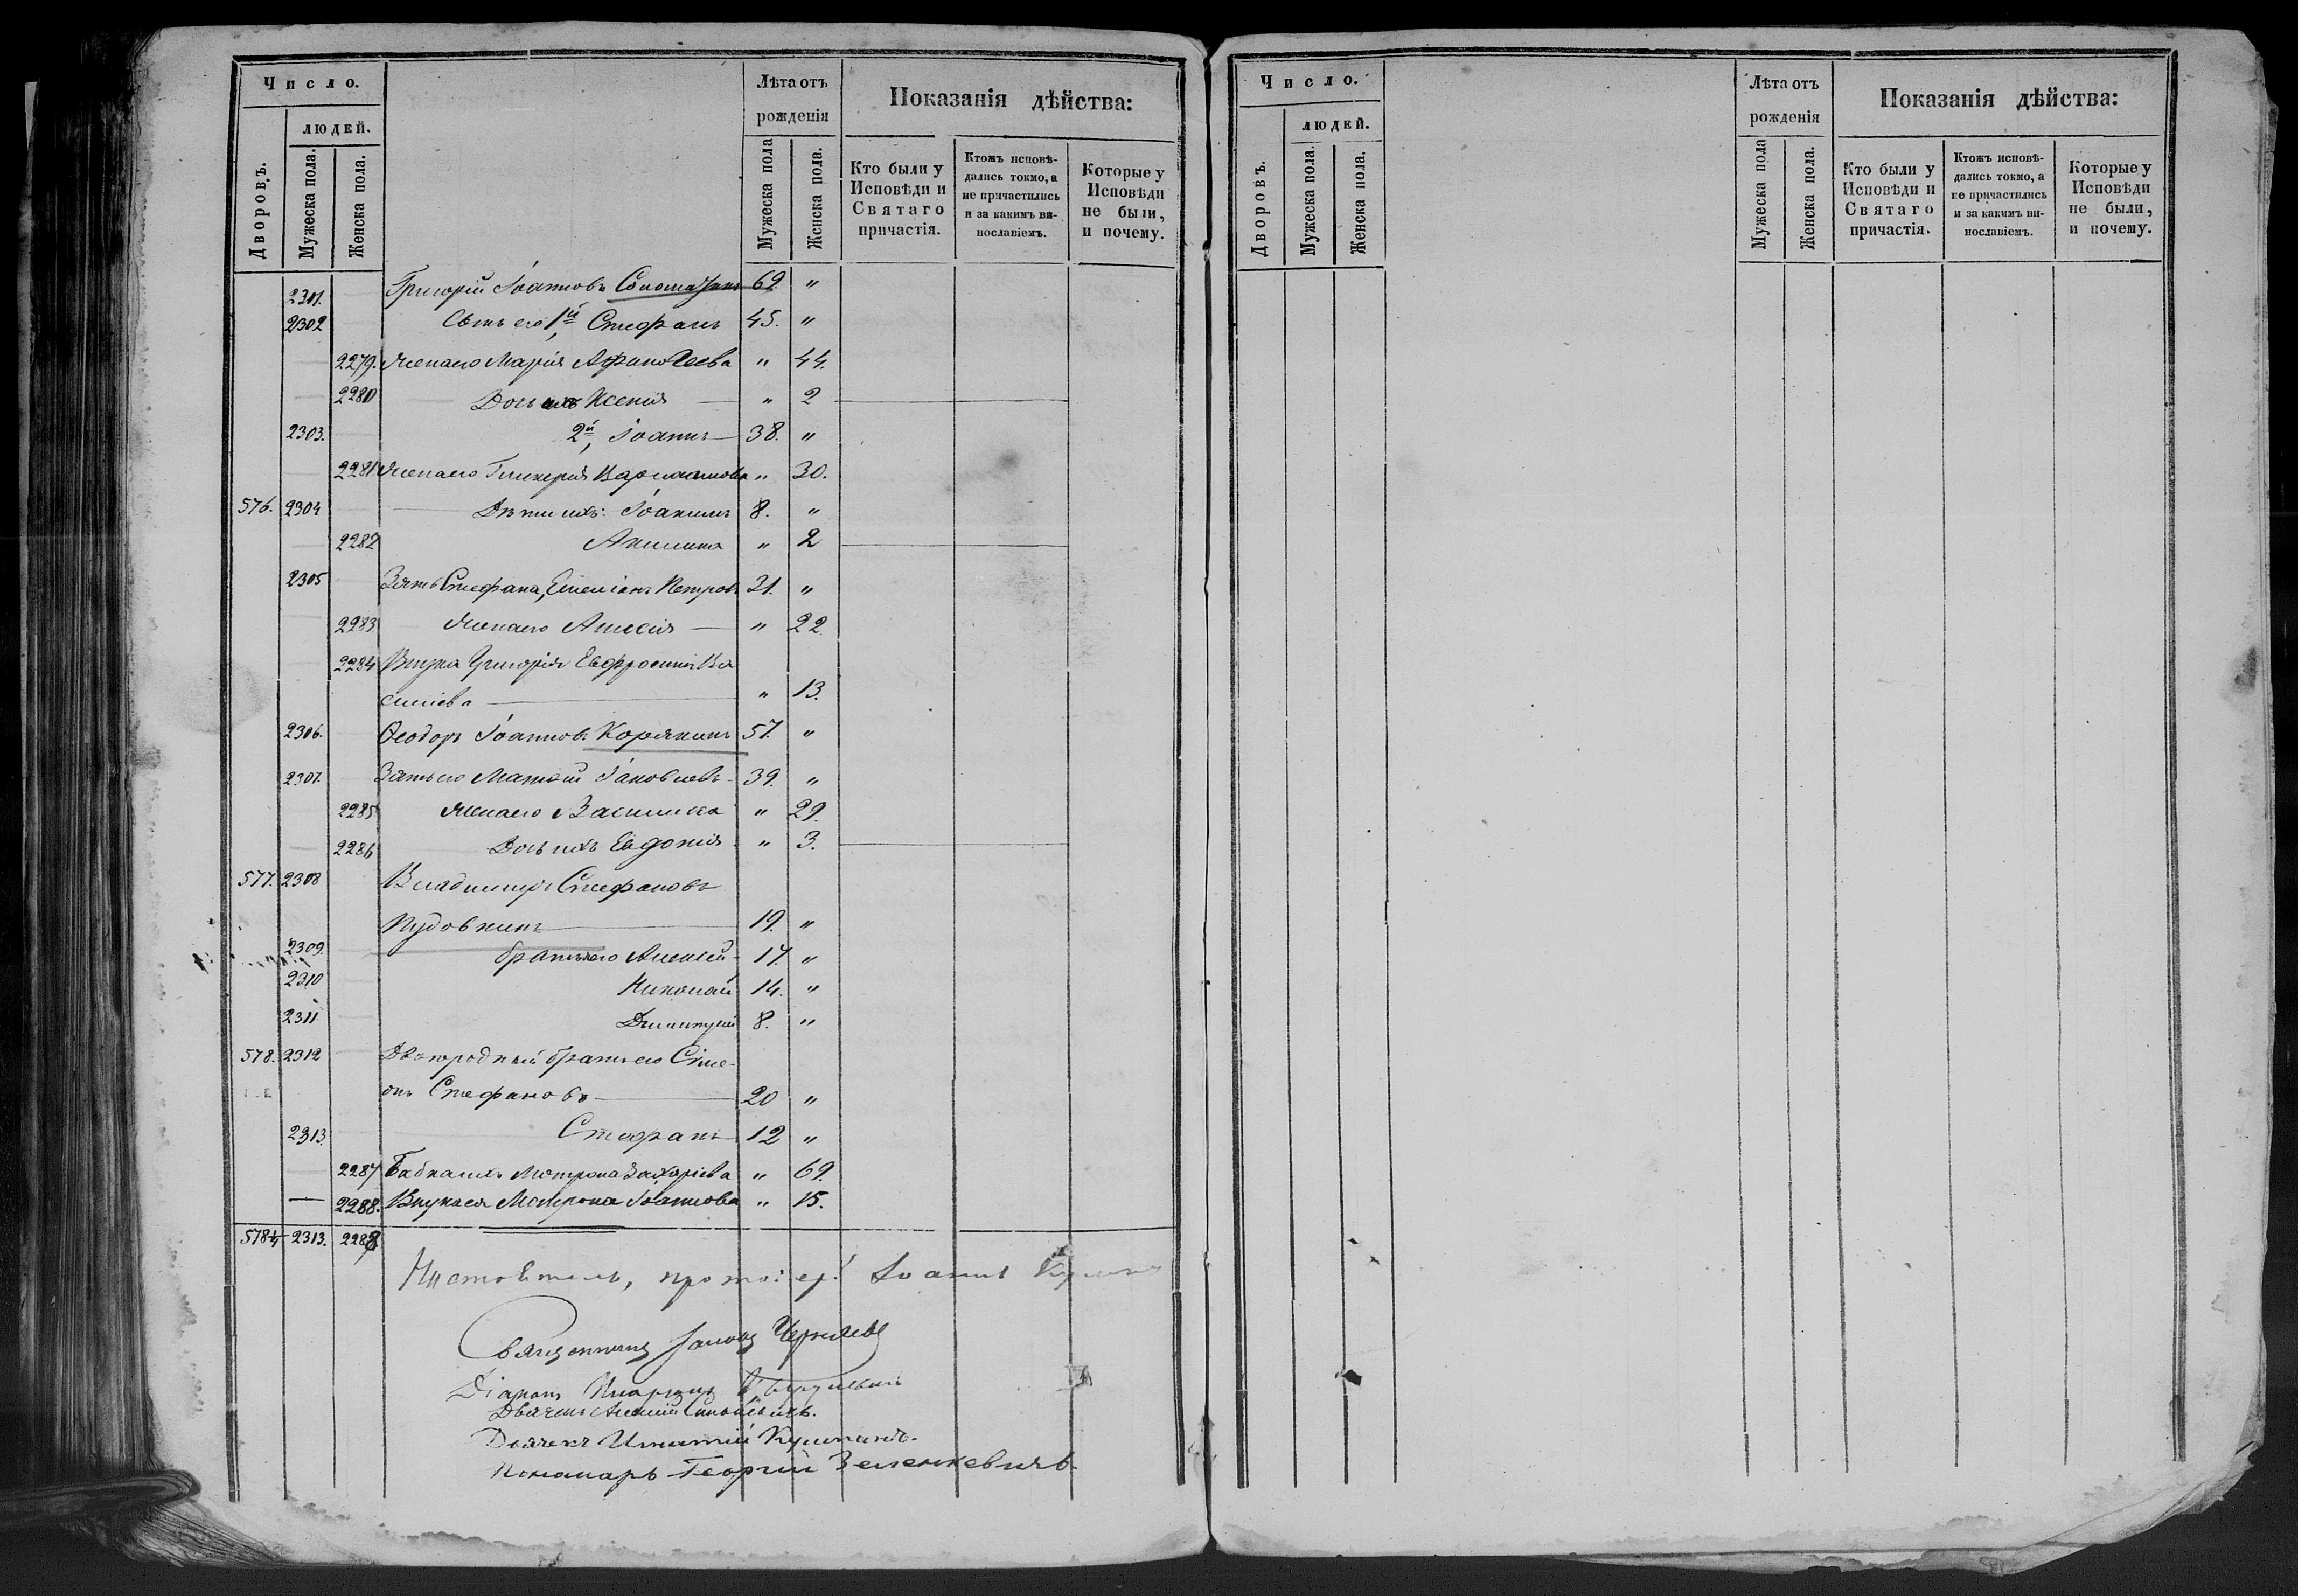 Число.
людей.
Дворовъ.
Мужеска пола.
Женска пола.
Лѣта отъ
рожденія
Мужеска пола
Женска пола.
Показанія дѣйства:
Кто были у
Исповѣди и
Святаго
причастія.
Ктожъ исповѣ-
дались токмо, а
не причастились
и за какимъ ви-
нословіемъ.
Которые у
Исповѣди
не были,
и почему.
2301. Григорій Іоанновъ 69. "
2302 Сынъ его 1й, Стефанъ 45. "
2279. Жена его Марія " 44.
2280 Дочь ихъ Ксенія " 2
2303. 2й, Іоаннъ 38. "
2281 Жена его Гликерія " 30.
576. 2304 Дѣти ихъ: Іоакимъ 8. "
2282 Акилина " 2
2305 Зять Стефана, Емеліанъ Петровъ 31. "
2283 Жена его Анисія " 22.
2284 Внука Григорія Евфросинія Ва
силіева " 13.
2306. Ѳеодоръ Іоанновъ Корякинъ 57. "
2307. Зять его Матѳій Іаковлевъ 39. "
2285 Жена его Василисса " 29.
2286 Дочь ихъ Евдокія " 3.
577. 2308 Владимиръ Стефановъ
Пудовкинъ 19. "
2309. братья его Алексѣй 17. "
2310 Николай 14. "
2311 Димитрій 8. "
578. 2312 Двоюродный братъ его Сѵме-
онъ Стефановъ 20 "
2313. Стефанъ 12 "
2287 Бабка ихъ Матрона Захаріева " 69.
2288. Внука ея Матрона Іоаннова " 15.
578 2313. 2288
Настоятель, протоіер. Іоаннъ
Священникъ Іаковъ Черняевъ
Діаконъ
Дьячекъ Алексій
Дьячекъ Игнатій
Пономарь Георгій Зеленкевичъ.
Число.
людей.
Дворовъ.
Мужеска пола.
Женска пола.
Лѣта отъ
рожденія
Мужеска пола
Женска пола.
Показанія дѣйства:
Кто были у
Исповѣди и
Святаго
причастія.
Ктожъ исповѣ-
дались токмо, а
не причастились
и за какимъ ви-
нославіемъ.
Которые у
Исповѣди
не были,
и почему.